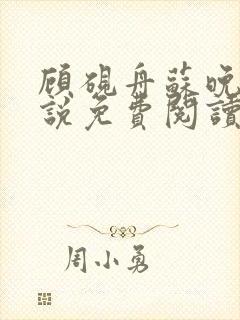 顾砚舟蘇晚
說免費閱讀
周小勇